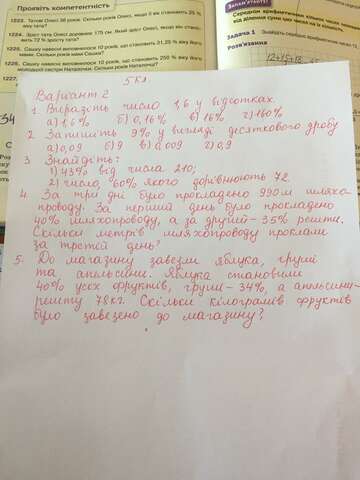 Проявіть компетентність
1223. Татові Олесі 36 років. Скільки років Олесі, якщо її вік становить 25 %
віку тата?
1224. Зріст тата Олесі дорівнює 175 см. Який зріст Олесі, якщо він становить
72 % зросту тата?
1225. Сашку навесні виповнилося 10 років, що становить 31,25 % віку його
мами. Скільки років мамі Сашка?
1226. Сашку навесні виповнилося 10 років, що становить 250 % віку його
молодшої сестри Наталочки. Скільки років Наталочці?
1227.
ЗАПАМ'ЯТАЙТЕ!
Середнім арифметичним кількох чисел
від ділення суми цих чисел на їх кількість.
Задача 1 Знайдіть середнє арифметичне чисел
Розв'язання
5 кл.
Варіант 2
1. Виразіть число 1,6 у відсотках.
а) 1,6% б) 0,16% в) 16% г) 160%
2. Запишіть 9% у вигляді десяткового дробу
а) 0,09 б) 9 в) 0,009 г) 0,9
3. Знайдіть:
1) 43% від числа 210;
2) число, 60% якого дорівнюють 72.
4. За три дні було прокладено 990 м шляхо
проводу. За перший день було прокладено
40% шляхопроводу, а за другий - 35% решти.
Скільки метрів шляхопроводу проклали
за третій день?
5. До магазину завезли яблука, груші
та апельсини. Яблука становили
40% усіх фруктів, груші - 34%, а апельсини -
решту 78 кг. Скільки кілограмів фруктів
було завезено до магазину?